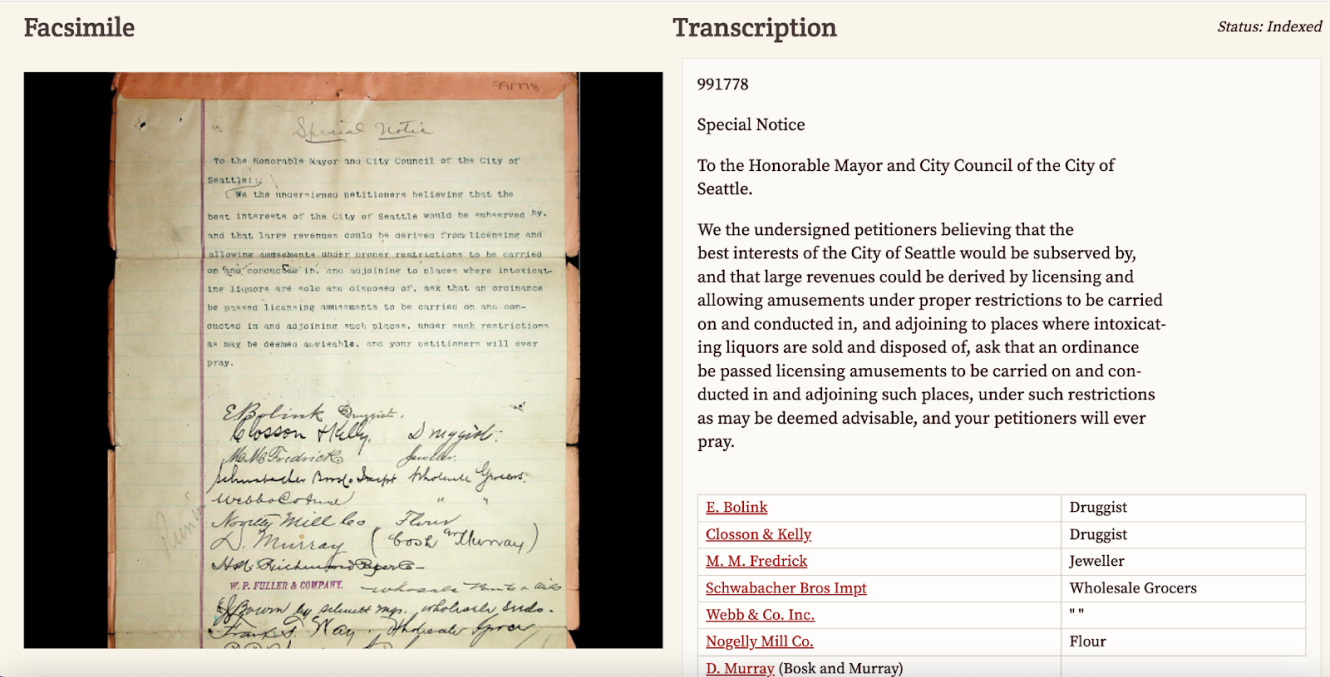 Facsimile
Transcription
Status: Indexed
991778
Special Notice
To the Honorable Mayor and City Council of the City of
Seattle:
We the undersigned petitioners believing that the
best interests of the City of Seattle would be subserved by,
and that large revenues could be derived from licensing and
allowing amusements under proper restrictions to be carried
on and conducted in, and adjoining to places where intoxicat-
ing liquors are sold and disposed of, ask that an ordinance
be passed licensing amusements to be carried on and con-
ducted in and adjoining such places, under such restrictions
as may be deemed advisable, and your petitioners will ever
pray.
E Bolink Druggist.
Closson & Kelly, Druggist.
M. M. Fredrick Jeweller.
Schwabacher Bros & Co Wholesale Grocers.
" "
Mill Co Flour
D. Murray ( & Murray)
Richmond Paper Co
W. P. FULLER & COMPANY. wholesale Paints & oils
Bowen by Schmidt mgr. wholesale
Frank Wholesale Grocer
991778
Special Notice
To the Honorable Mayor and City Council of the City of
Seattle.
We the undersigned petitioners believing that the
best interests of the City of Seattle would be subserved by,
and that large revenues could be derived by licensing and
allowing amusements under proper restrictions to be carried
on and conducted in, and adjoining to places where intoxicat-
ing liquors are sold and disposed of, ask that an ordinance
be passed licensing amusements to be carried on and con-
ducted in and adjoining such places, under such restrictions
as may be deemed advisable, and your petitioners will ever
pray.
E. Bolink Druggist
Closson & Kelly Druggist
M. M. Fredrick Jeweller
Schwabacher Bros Impt Wholesale Grocers
Webb & Co. Inc. " "
Nogelly Mill Co. Flour
D. Murray (Bosk and Murray)